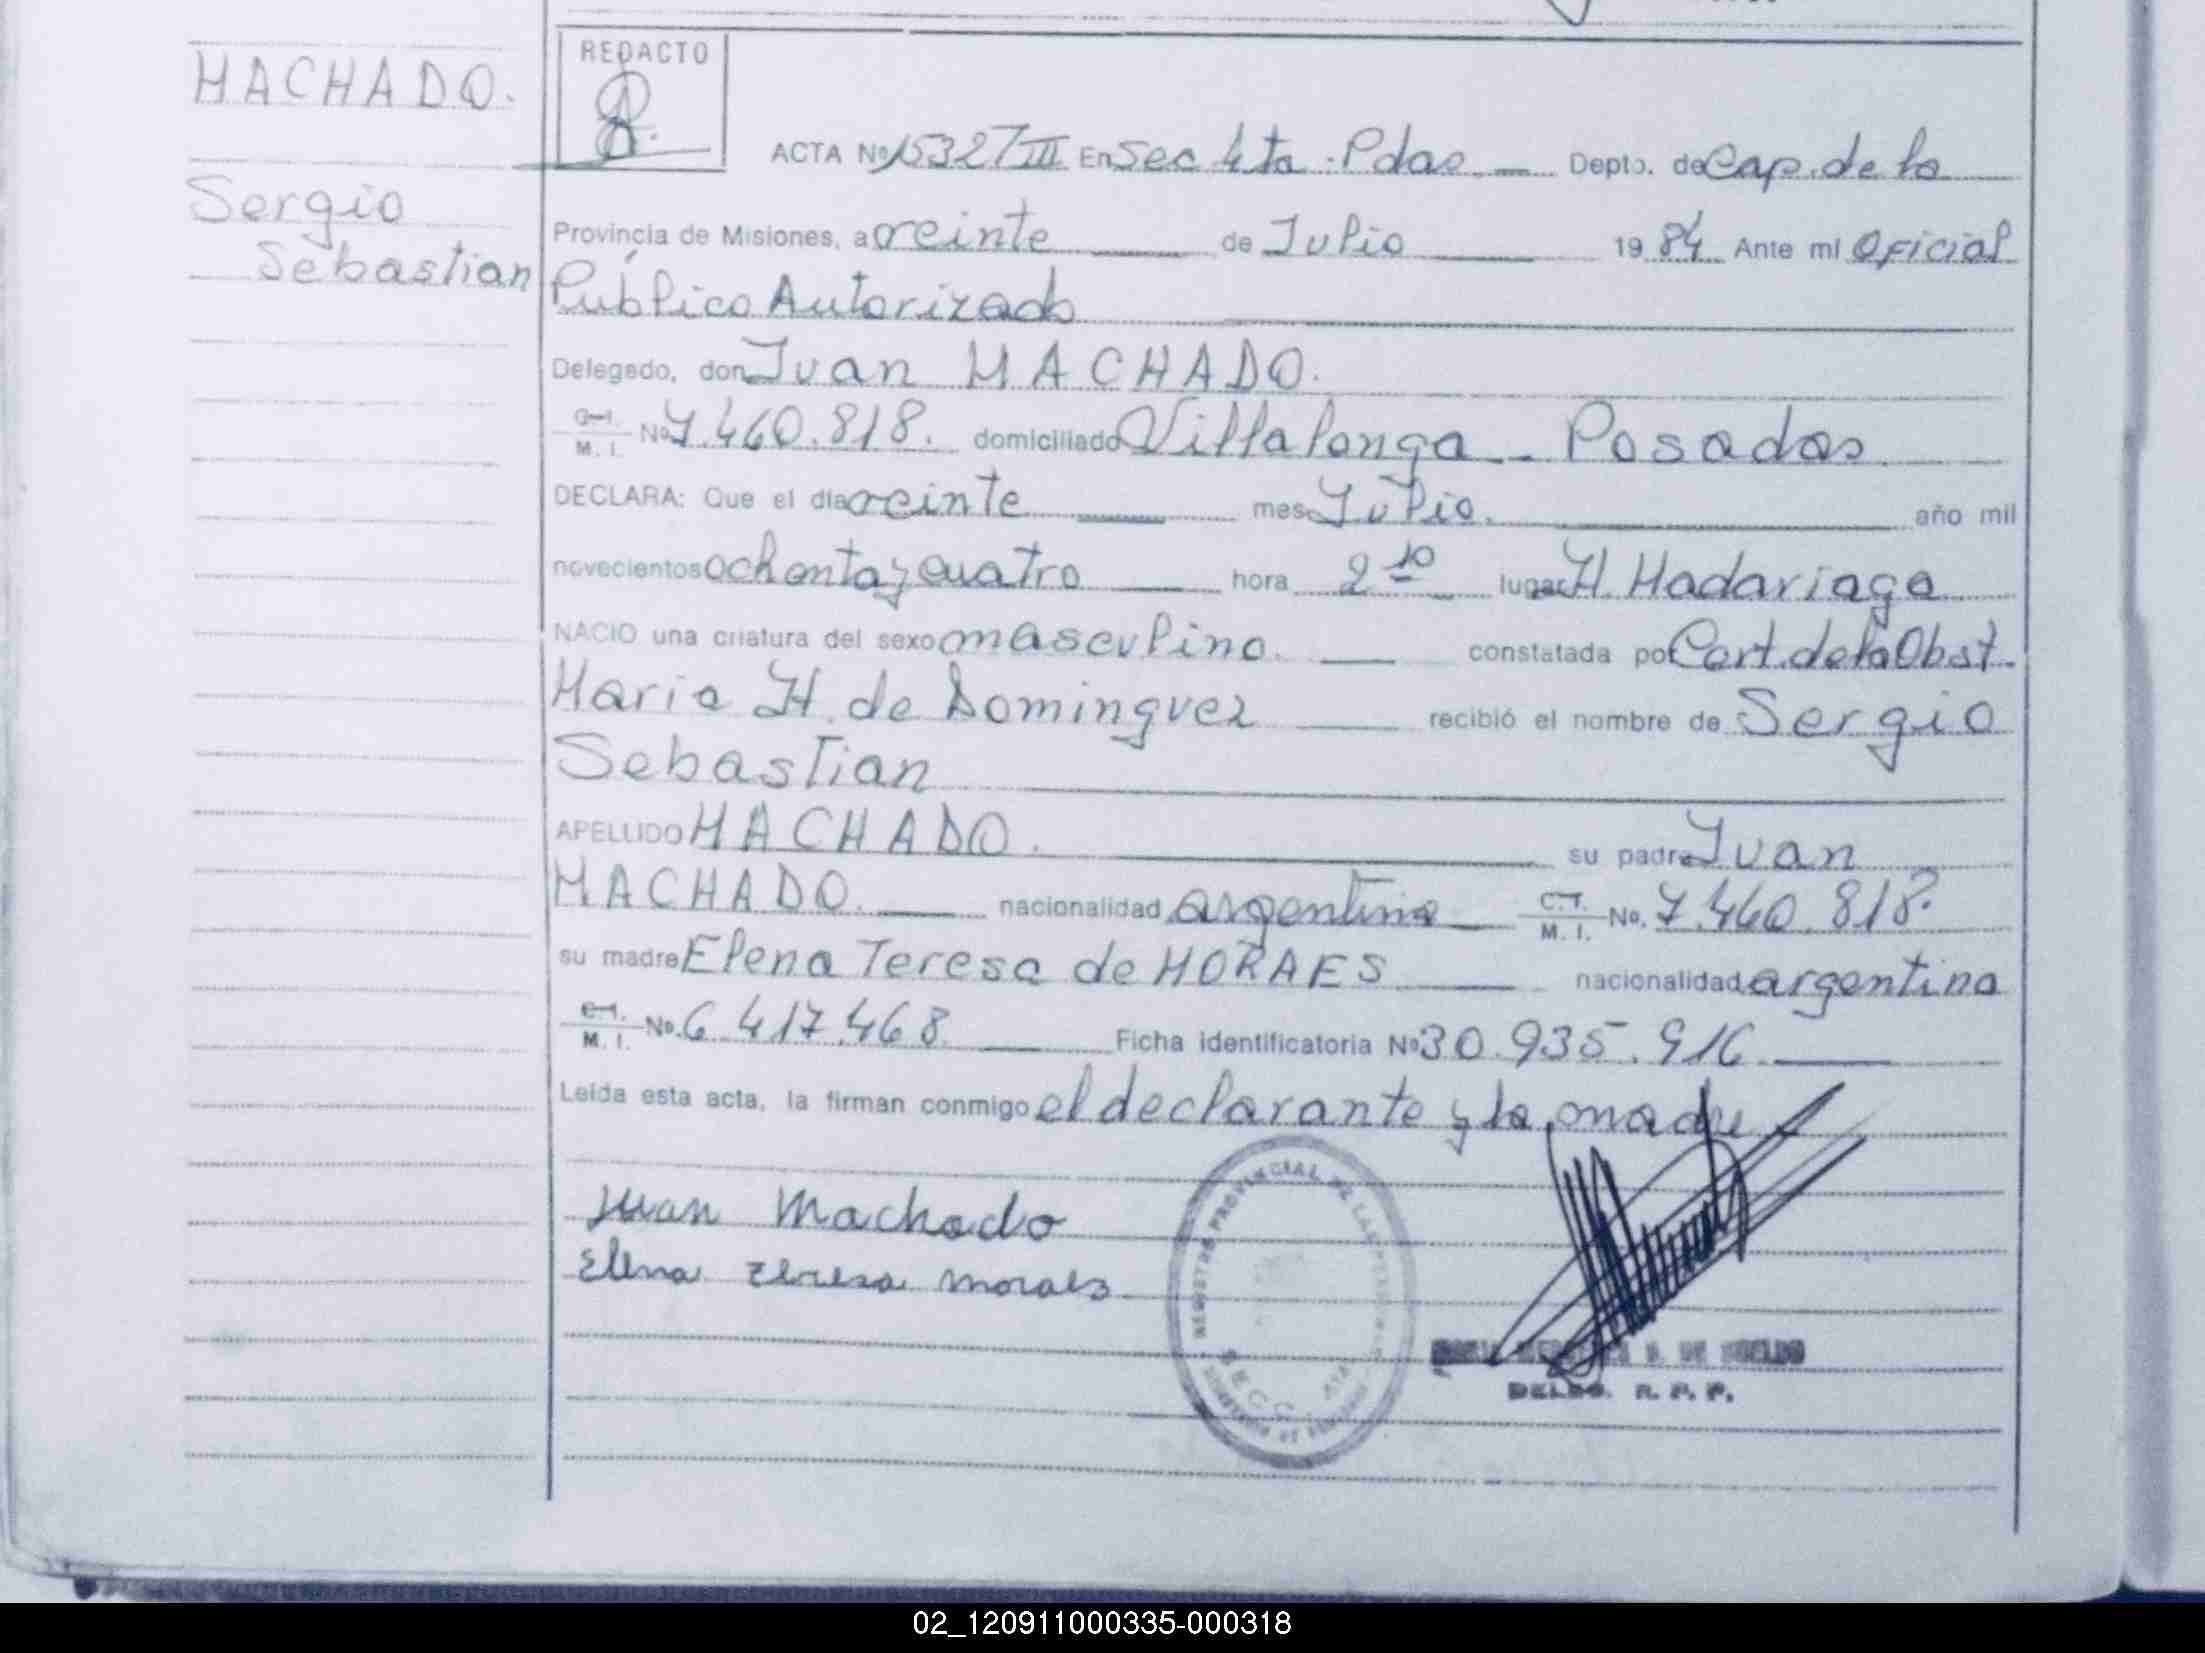 MACHADO.
Sergio
Sebastian
REDACTO
ACTA Nº 15327 III En Sec 4ta. Pdas. Depto. de Cap. de la
Provincia de Misiones, a veinte de Julio 1984 Ante mi Oficial
Público Autorizado
Delegado, don Juan MACHADO.
C.I. M. I. Nº 7.460.818. domiciliado Villalonga - Posadas
DECLARA: Que el día veinte mes Julio. año mil
novecientos ochenta y cuatro hora 2 10 lugar H. Madariaga
NACIO una criatura del sexo masculino. constatada por Cert. de la Obst.
Maria H. de Dominguez recibió el nombre de Sergio
Sebastian
APELLIDO MACHADO. su padre Juan
MACHADO. nacionalidad argentina C.I. M. I. No. 7.460.818.
su madre Elena Teresa de MORAES nacionalidad argentina
C.I. M. I. No. 6.417.468 Ficha identificatoria Nº 30.935.916
Leida esta acta, la firman conmigo el declarante y la madre
Juan Machado
Elena Teresa Moraes
REGISTRO PROVINCIAL DE LAS PERSONAS
SECC. 4TA
DELEG. R. P. P.
02_120911000335-000318